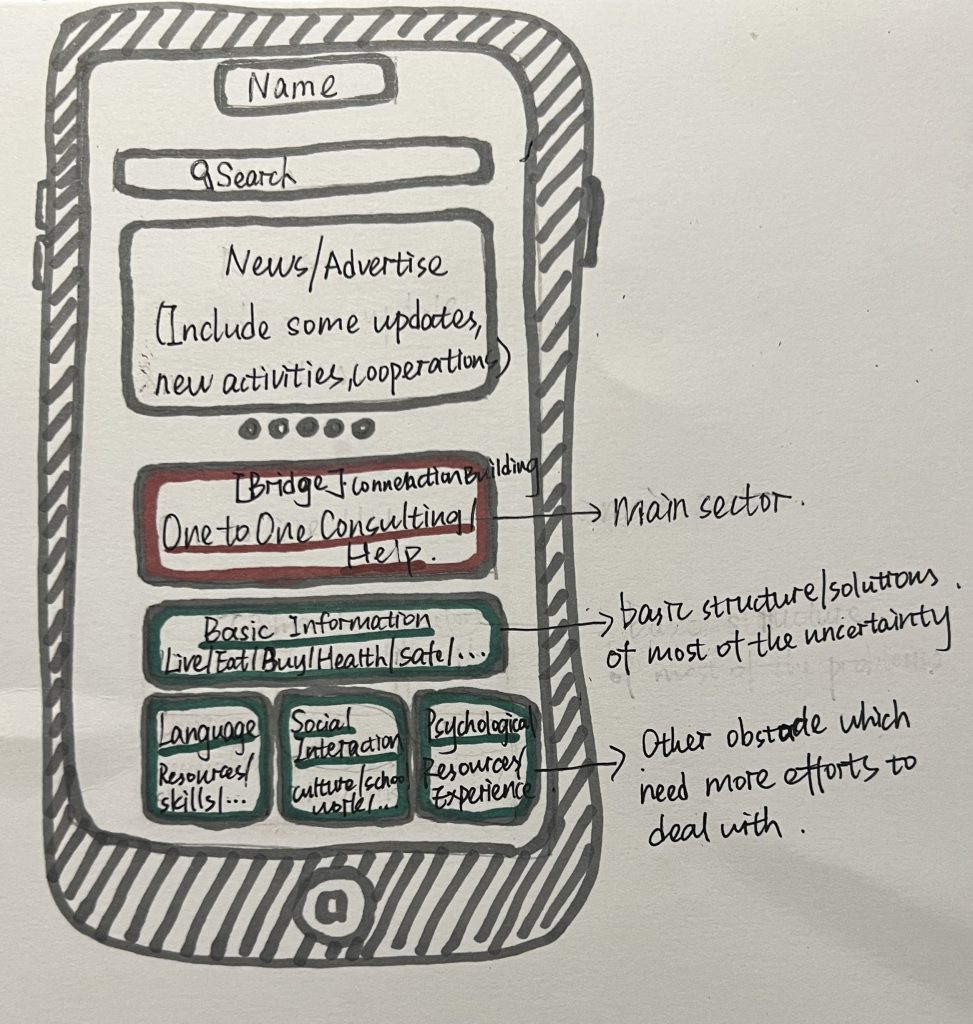 Name
Search
News/Advertise
(Include some updates,
new activities, cooperations)
[Bridge] Connection Building
One to One Consulting/
Help.
→ main sector.
Basic Information
Live/Eat/Buy/Health/safe/...
→ basic structure/solutions
of most of the uncertainty
Language
Resources/
skills/...
Social
Interaction
culture/school
work/...
Psychological
Resources/
Experience
→ Other obstacle which
need more efforts to
deal with.